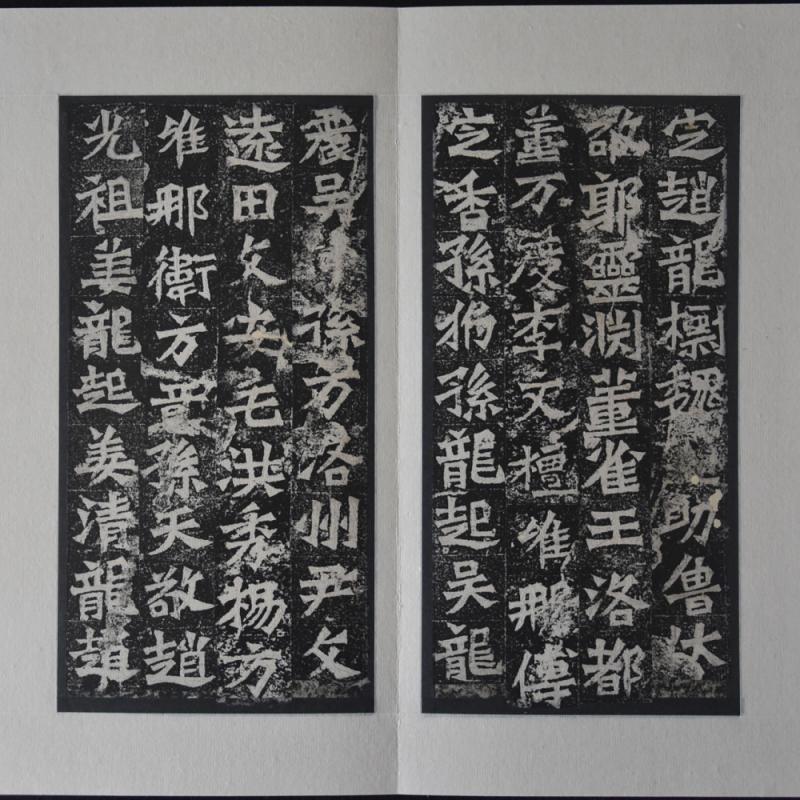 定趙龍標魏助魯伏
敬郭靈淵董雀王洛都
董万度李文檀唯那傅
定香孫豹孫龍起吳龍
震吳孫方洛州尹文
遠田文安毛洪秀楊方
唯那衛方意孫天敬趙
光祖姜龍起姜清龍